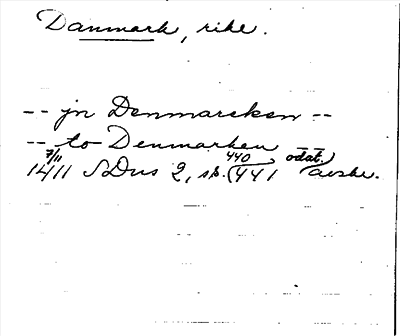 Danmark, rike.
-- jn Denmarcken --
-- to Denmarken
7/11 440 odat.)
1411 SDns 2, sp. (441 avskr.